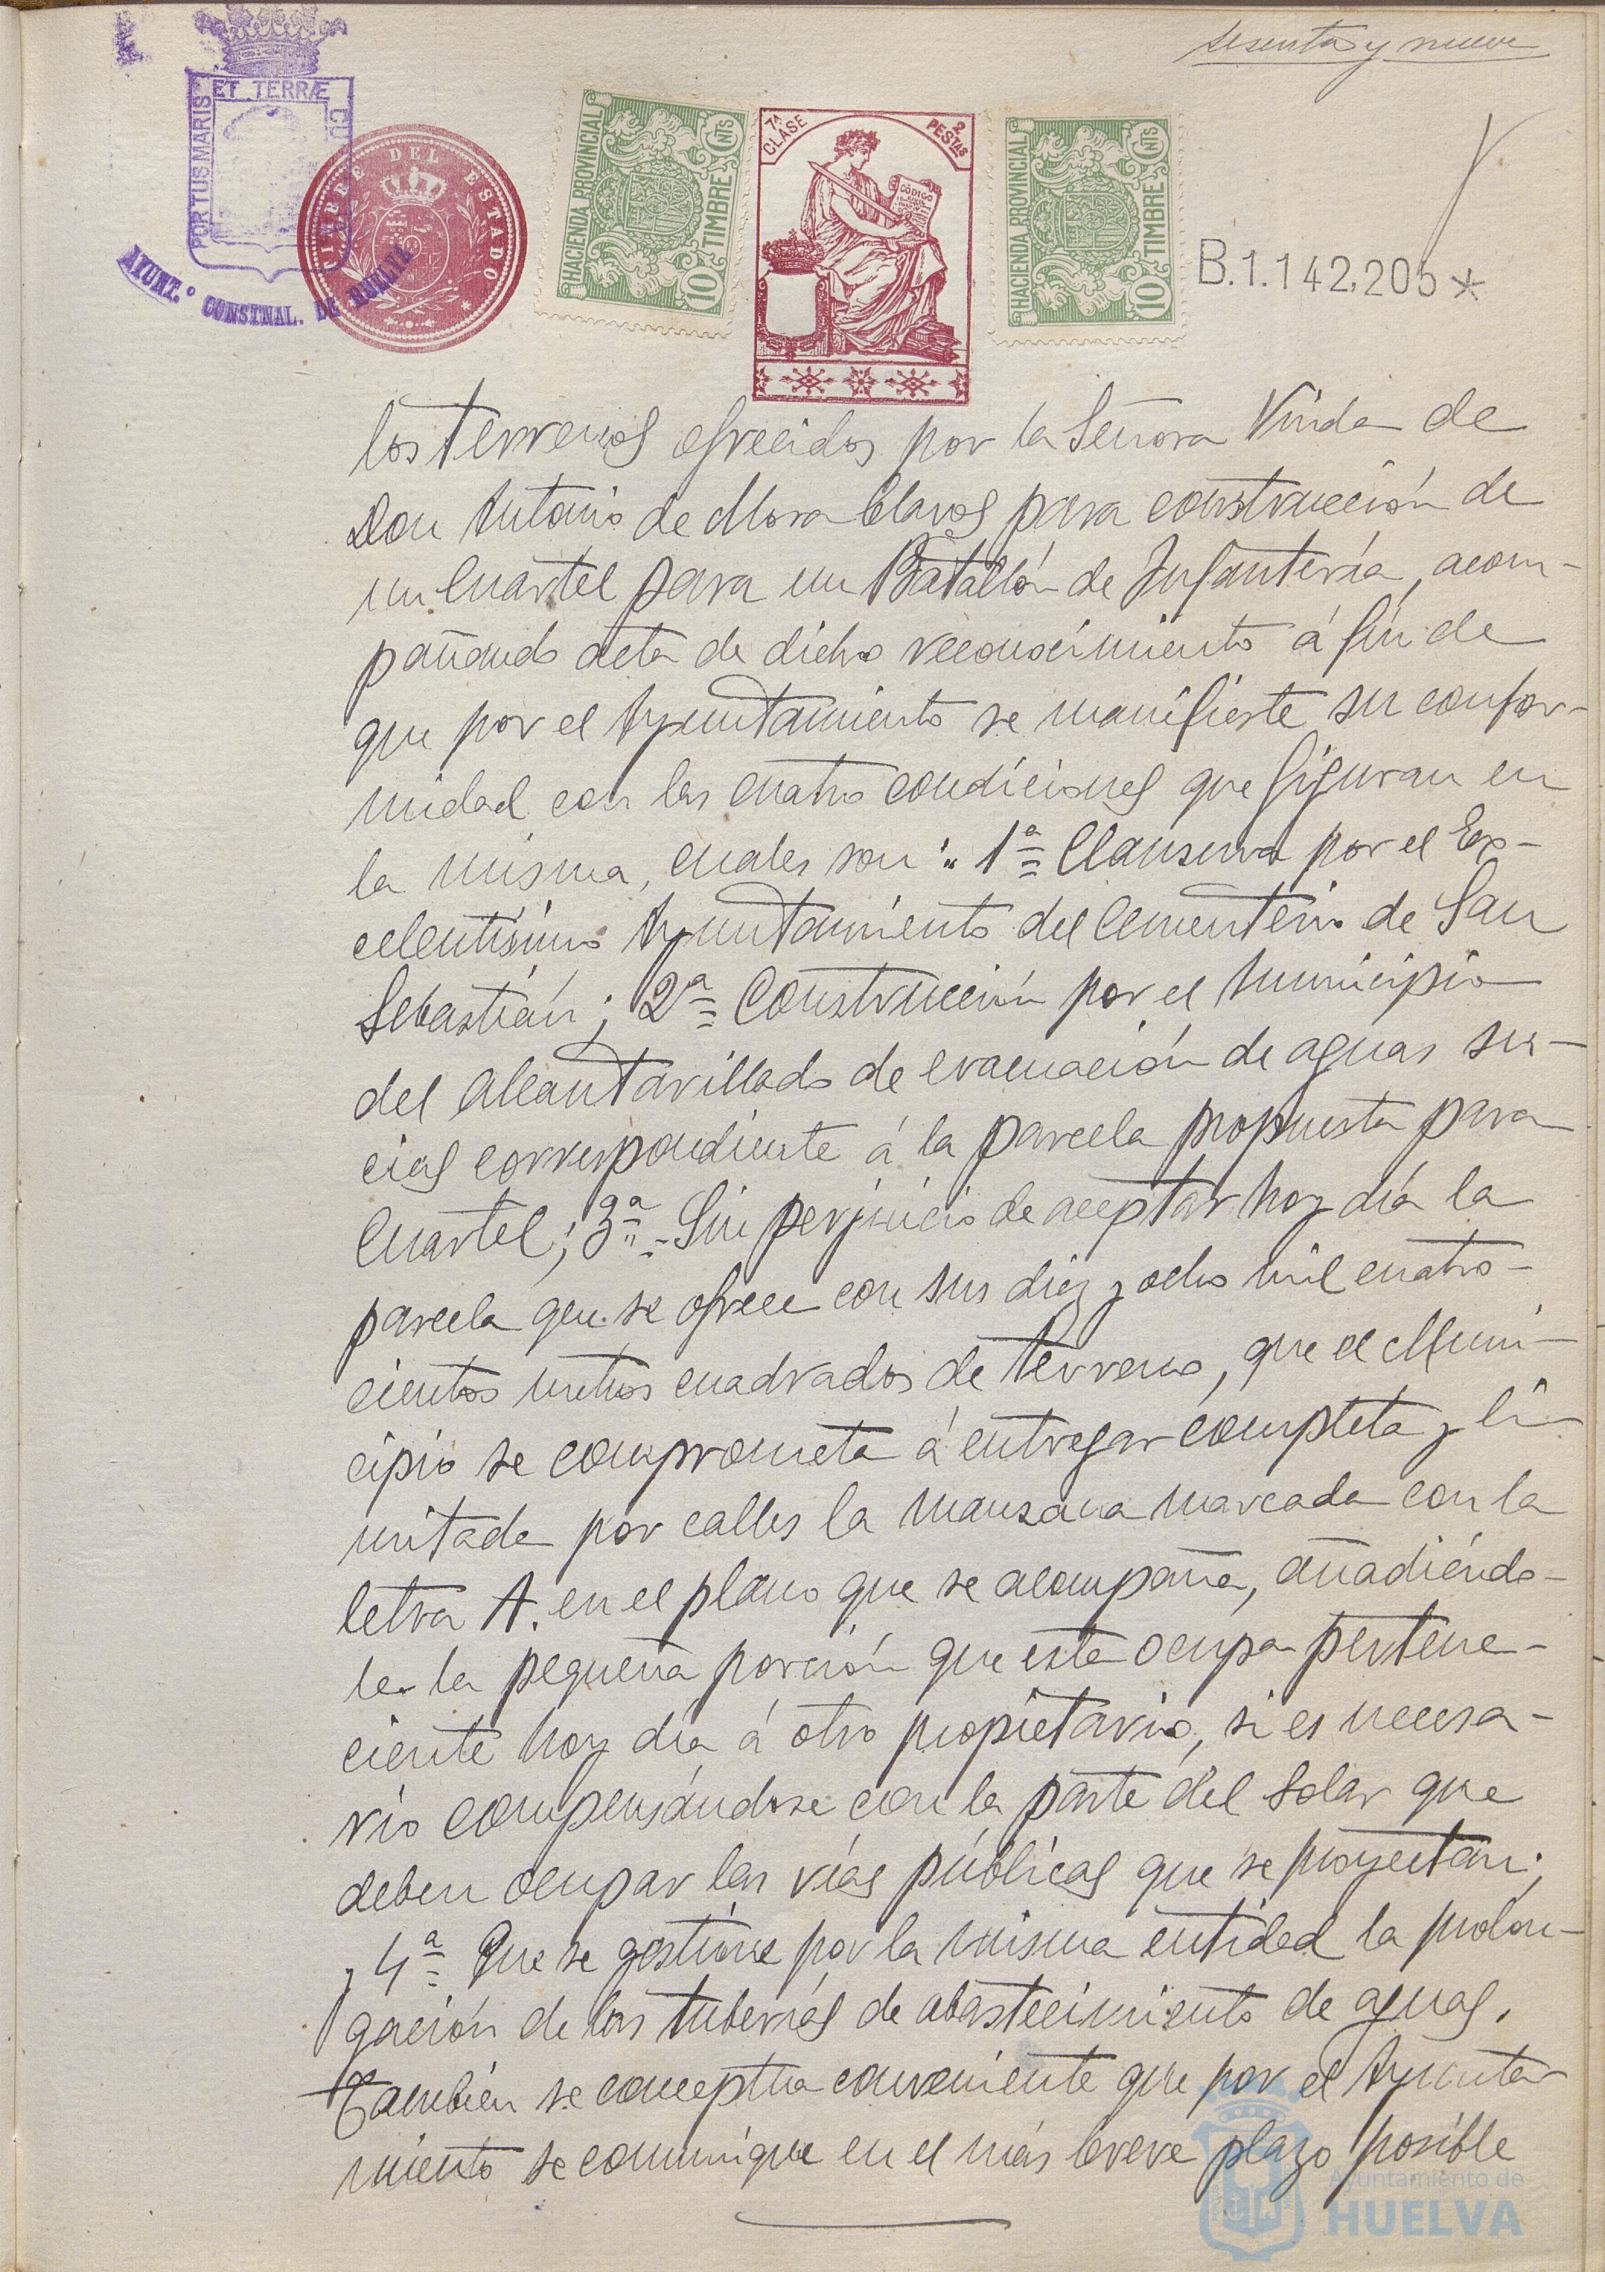 sesenta y nueve
PORTUS MARIS ET TERRÆ CU
AYUNT.º CONSTNAL. DE HUELVA
TIMBRE DEL ESTADO
HACIENDA PROVINCIAL 10 CNTS TIMBRE
7ª CLASE 2 PESTAS
CÓDIGO
HACIENDA PROVINCIAL 10 CNTS TIMBRE
B.1.142,205*
los terrenos ofrecidos por la Señora Viuda de
Don Antonio de Mora Claros para construcción de
un Cuartel para un Batallón de Infantería, acom-
pañando acta de dicho reconocimiento á fin de
que por el Ayuntamiento se manifieste su confor-
midad con las cuatro condiciones que figuran en
la misma, cuales son: "1ª Clausura por el Ex-
celentísimo Ayuntamiento del Cementerio de San
Sebastián; 2ª Construcción por el Municipio
del alcantarillado de evacuación de aguas su-
cias correspondiente á la parcela propuesta para
Cuartel; 3ª - Sin perjuicio de aceptar hoy día la
parcela que se ofrece con sus diez y ocho mil cuatro-
cientos metros cuadrados de terreno, que el Muni-
cipio se comprometa á entregar completa y li-
mitada por calles la manzana marcada con la
letra A. en el plano que se acompaña, añadiéndo-
le la pequeña porción que esta ocupa pertene-
ciente hoy día á otro propietario, si es necesa-
rio compensándose con la parte del solar que
deben ocupar las vías públicas que se proyectan;
y 4ª Que se gestione por la misma entidad la prolon-
gación de las tuberías de abastecimiento de aguas.
También se conceptua conveniente que por el Ayunta-
miento se comunique en el más breve plazo posible
Ayuntamiento de
HUELVA